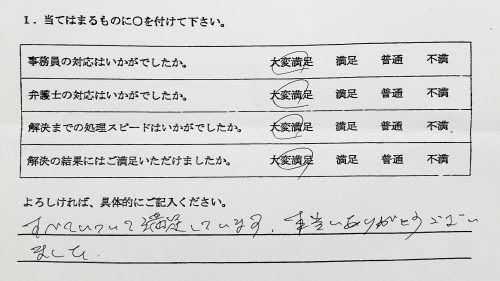 1．当てはまるものに○を付けて下さい。
事務員の対応はいかがでしたか。 大変満足 満足 普通 不満
弁護士の対応はいかがでしたか。 大変満足 満足 普通 不満
解決までの処理スピードはいかがでしたか。 大変満足 満足 普通 不満
解決の結果にはご満足いただけましたか。 大変満足 満足 普通 不満
よろしければ、具体的にご記入ください。
すべてにおいて満足しています。本当にありがとうござい
ました。